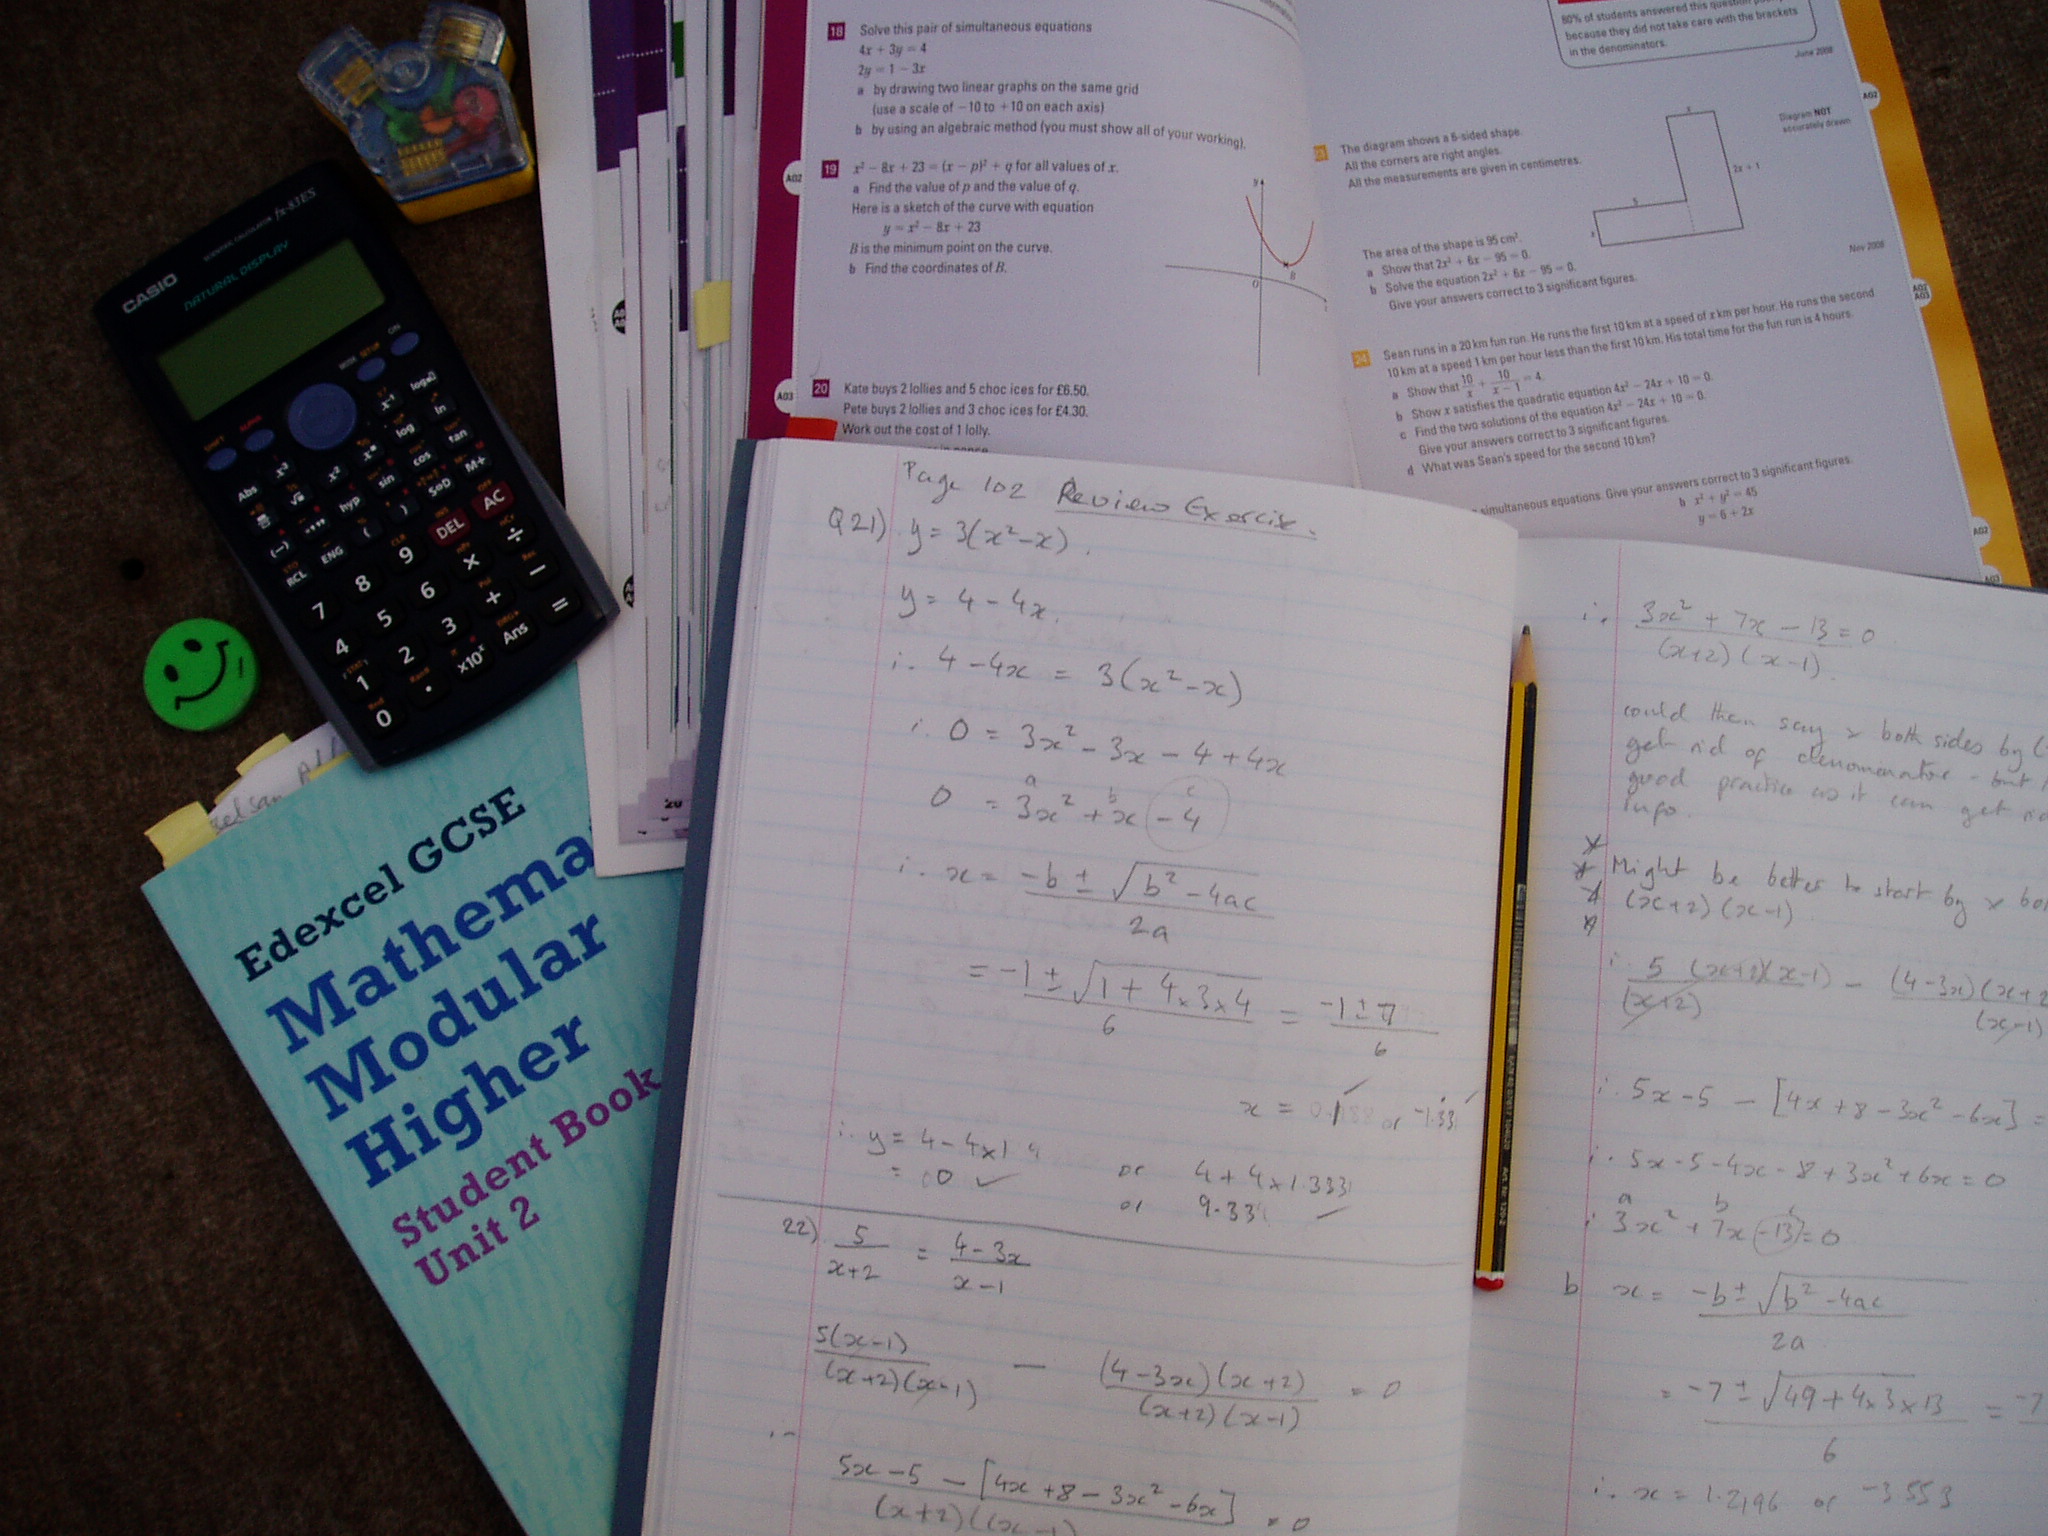 18 Solve this pair of simultaneous equations
4x + 3y = 4
2y = 1 − 3x
a by drawing two linear graphs on the same grid
(use a scale of −10 to +10 on each axis)
b by using an algebraic method (you must show all of your working).
A02
19 x² − 8x + 23 = (x − p)² + q for all values of x.
a Find the value of p and the value of q.
Here is a sketch of the curve with equation
y = x² − 8x + 23
B is the minimum point on the curve.
b Find the coordinates of B.
y
O
B
A03
20 Kate buys 2 lollies and 5 choc ices for £6.50.
Pete buys 2 lollies and 3 choc ices for £4.30.
Work out the cost of 1 lolly.
80% of students answered this question
because they did not take care with the brackets
in the denominators.
June 2008
A02
The diagram shows a 6-sided shape.
All the corners are right angles.
All the measurements are given in centimetres.
Diagram NOT
accurately drawn
x
2x + 1
5
x
The area of the shape is 95 cm².
a Show that 2x² + 6x − 95 = 0.
b Solve the equation 2x² + 6x − 95 = 0.
Give your answers correct to 3 significant figures.
Nov 2008
A02
A03
24 Sean runs in a 20 km fun run. He runs the first 10 km at a speed of x km per hour. He runs the second
10 km at a speed 1 km per hour less than the first 10 km. His total time for the fun run is 4 hours.
a Show that 10/x + 10/(x − 1) = 4.
b Show x satisfies the quadratic equation 4x² − 24x + 10 = 0.
c Find the two solutions of the equation 4x² − 24x + 10 = 0.
Give your answers correct to 3 significant figures.
d What was Sean's speed for the second 10 km?
simultaneous equations. Give your answers correct to 3 significant figures.
b x² + y² = 45
y = 6 + 2x
A02
A03
CASIO
fx-83ES
NATURAL DISPLAY
SHIFT ALPHA MODE SETUP ON
Abs x³ x⁻¹ log
√ x² log ln
(−) hyp sin cos tan
RCL ENG ( ) S⇔D M+
7 8 9 DEL AC
4 5 6 × ÷
1 2 3 + −
0 . ×10ˣ Ans =
Edexcel GCSE
Mathema
Modular
Higher
Student Book
Unit 2
Page 102 Review Exercise.
Q21) y = 3(x² − x).
y = 4 − 4x.
∴ 4 − 4x = 3(x² − x)
∴ 0 = 3x² − 3x − 4 + 4x
a b c
0 = 3x² + x − 4
∴ x = (−b ± √(b² − 4ac))/2a
= (−1 ± √(1 + 4×3×4))/6 = (−1 ± 7)/6
x = 1 or −1.33
∴ y = 4 − 4×1 or 4 + 4×1.333
= 0 ✓ or 9.33 ✓
22) 5/(x+2) = (4 − 3x)/(x − 1)
5(x−1)/((x+2)(x−1)) − (4−3x)(x+2)/((x+2)(x−1)) = 0
(5x − 5 − [4x + 8 − 3x² − 6x])/((x+2)(x−1) = 0
∴ (3x² + 7x − 13)/((x+2)(x−1)) = 0
could then say × both sides by
get rid of denominator − but
good practice as it can get
info.
Might be better to start by ×
(x+2)(x−1)
∴ 5(x+2)(x−1)/(x+2) − (4−3x)(x+2/(x−1)
∴ 5x − 5 − [4x + 8 − 3x² − 6x] =
∴ 5x − 5 − 4x − 8 + 3x² + 6x = 0
a b c
∴ 3x² + 7x − 13 = 0
b x = (−b ± √(b² − 4ac))/2a
= (−7 ± √(49 + 4×3×13))/6 = −7
∴ x = 1.2196 or −3.553